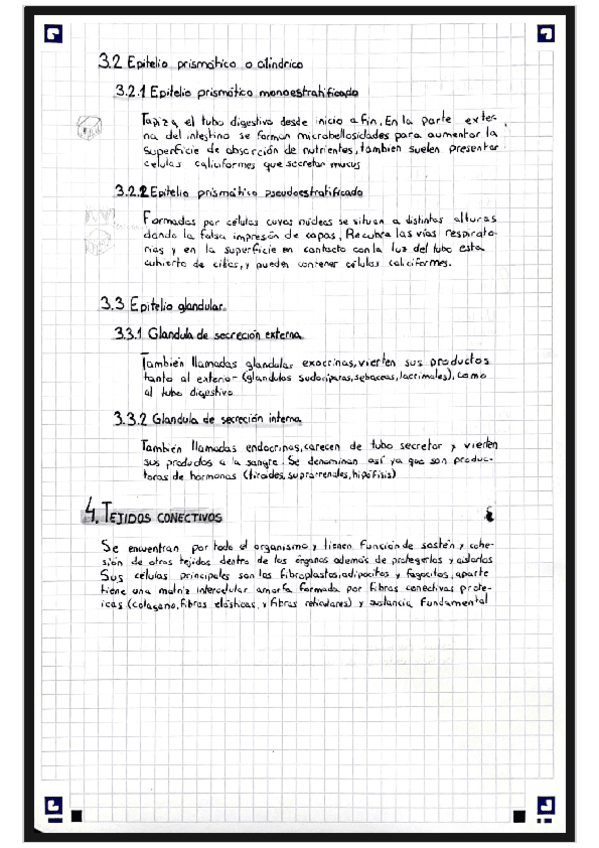 3.2 Epitelio prismático o cilíndrico
3.2.1 Epitelio prismático monoestratificado
Tapiza el tubo digestivo desde inicio a fin. En la parte exter-
na del intestino se forman microbellosidades para aumentar la
superficie de absorción de nutrientes, tambien suelen presentar
celulas caliciformes que secretan mucus
3.2.2 Epitelio prismático pseudoestratificado
Formadas por células cuyos núcleos se situan a distintas alturas
dando la falsa impresión de capas. Recubre las vías respirato-
rias y en la superficie en contacto con la luz del tubo esta
cubierto de cilios, y pueden contener células caliciformes.
3.3 Epitelio glandular
3.3.1 Glandula de secreción externa
También llamadas glandulas exocrinas, vierten sus productos
tanto al exterior (glandulas sudoriparas, sebaceas, lacrimales), como
al tubo digestivo
3.3.2 Glandula de secreción interna
También llamadas endocrinas, carecen de tubo secretor y vierten
sus productos a la sangre. Se denominan así ya que son produc-
toras de hormonas (tiroides, suprarrenales, hipófisis)
4. TEJIDOS CONECTIVOS
Se encuentran por todo el organismo y tienen función de sostén y cohe-
sión de otros tejidos dentro de los órganos además de protegerlos y aislarlos
Sus células principales son los fibroplastos, adipocitos y fagocitos, aparte
tiene una matriz intercelular amorfa formada por fibras conectivas prote-
icas (colageno, fibras elásticas, y fibras reticulares) y sustancia fundamental